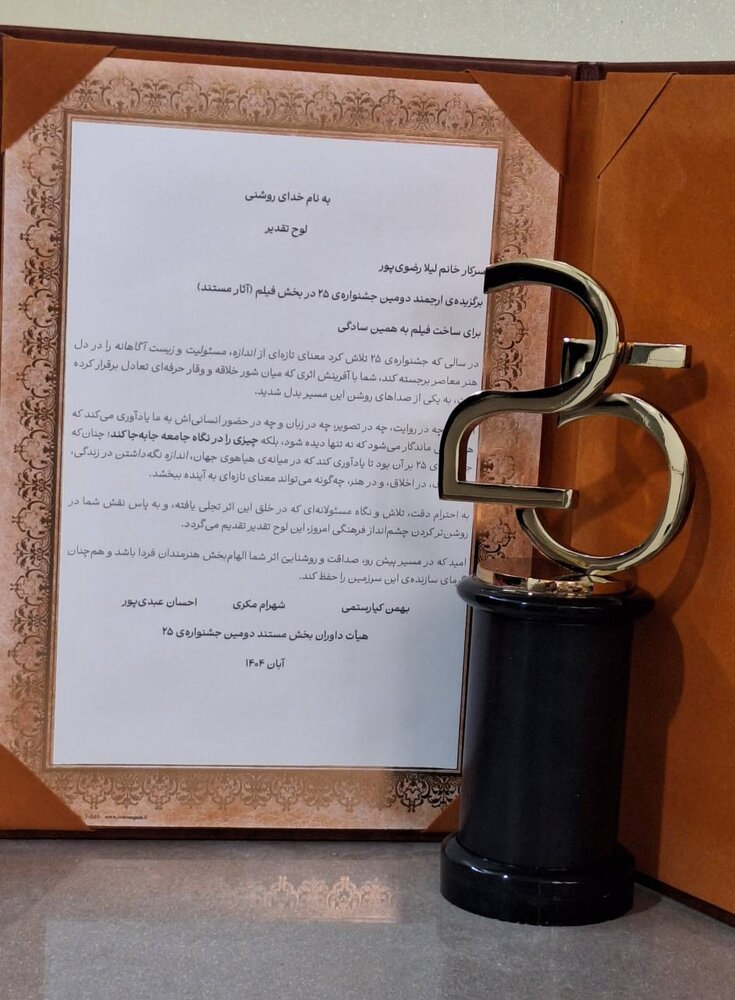 به نام خدای روشنی
لوح تقدیر
سرکار خانم لیلا رضوی‌پور
برگزیده‌ی ارجمند دومین جشنواره‌ی ۲۵ در بخش فیلم (آثار مستند)
برای ساخت فیلم به همین سادگی
در سالی که جشنواره‌ی ۲۵ تلاش کرد معنای تازه‌ای از اندازه، مسئولیت و زیست آگاهانه را در دل
هنر معاصر برجسته کند، شما با آفرینش اثری که میان شور خلاقه و وقار حرفه‌ای تعادل برقرار کرده
به یکی از صداهای روشن این مسیر بدل شدید.
چه در روایت، چه در تصویر، چه در زبان و چه در حضور انسانی‌اش به ما یادآوری می‌کند که
ماندگار می‌شود که نه تنها دیده شود، بلکه چیزی را در نگاه جامعه جابه‌جا کند؛ چنان‌که
۲۵ بر آن بود تا یادآوری کند که در میانه‌ی هیاهوی جهان، اندازه نگه‌داشتن در زندگی،
در اخلاق، و در هنر، چه‌گونه می‌تواند معنای تازه‌ای به آینده ببخشد.
به احترام دقت، تلاش و نگاه مسئولانه‌ای که در خلق این اثر تجلی یافته، و به پاس نقش شما در
روشن‌تر کردن چشم‌انداز فرهنگی امروز، این لوح تقدیر تقدیم می‌گردد.
امید که در مسیر پیش رو، صداقت و روشنایی اثر شما الهام‌بخش هنرمندان فردا باشد و هم‌چنان
سازنده‌ی این سرزمین را حفظ کند.
بهمن کیارستمی شهرام مکری احسان عبدی‌پور
هیأت داوران بخش مستند دومین جشنواره‌ی ۲۵
آبان ۱۴۰۴
25